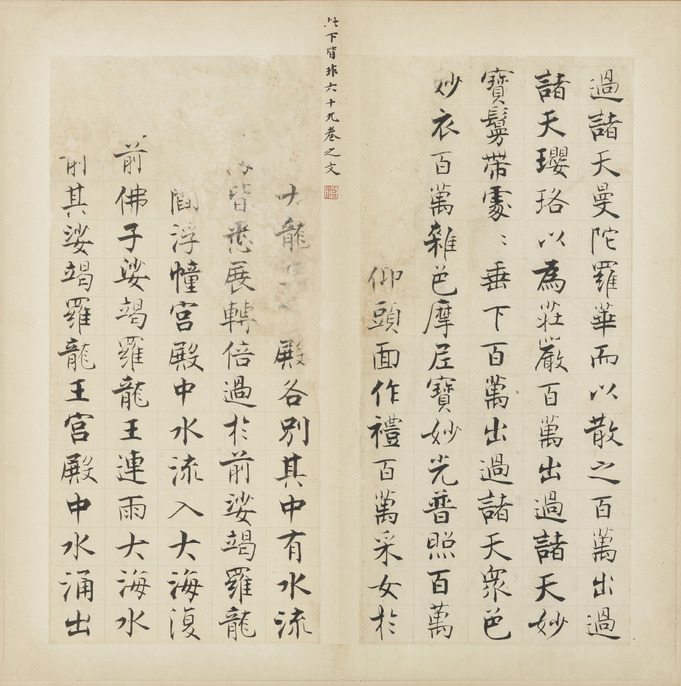 過諸天曼陀羅華而以散之百萬出過
諸天瓔珞以為莊嚴百萬出過諸天妙
寶鬘帶處〻垂下百萬出過諸天衆色
妙衣百萬雜色摩尼寶妙光普照百萬
仰頭面作禮百萬采女於
此下皆非六十九卷之文
大龍 殿各別其中有水流
皆悉展轉倍過於前娑竭羅龍
閻浮幢宮殿中水流入大海復
前佛子娑竭羅龍王連雨大海水
前其娑竭羅龍王宮殿中水涌出